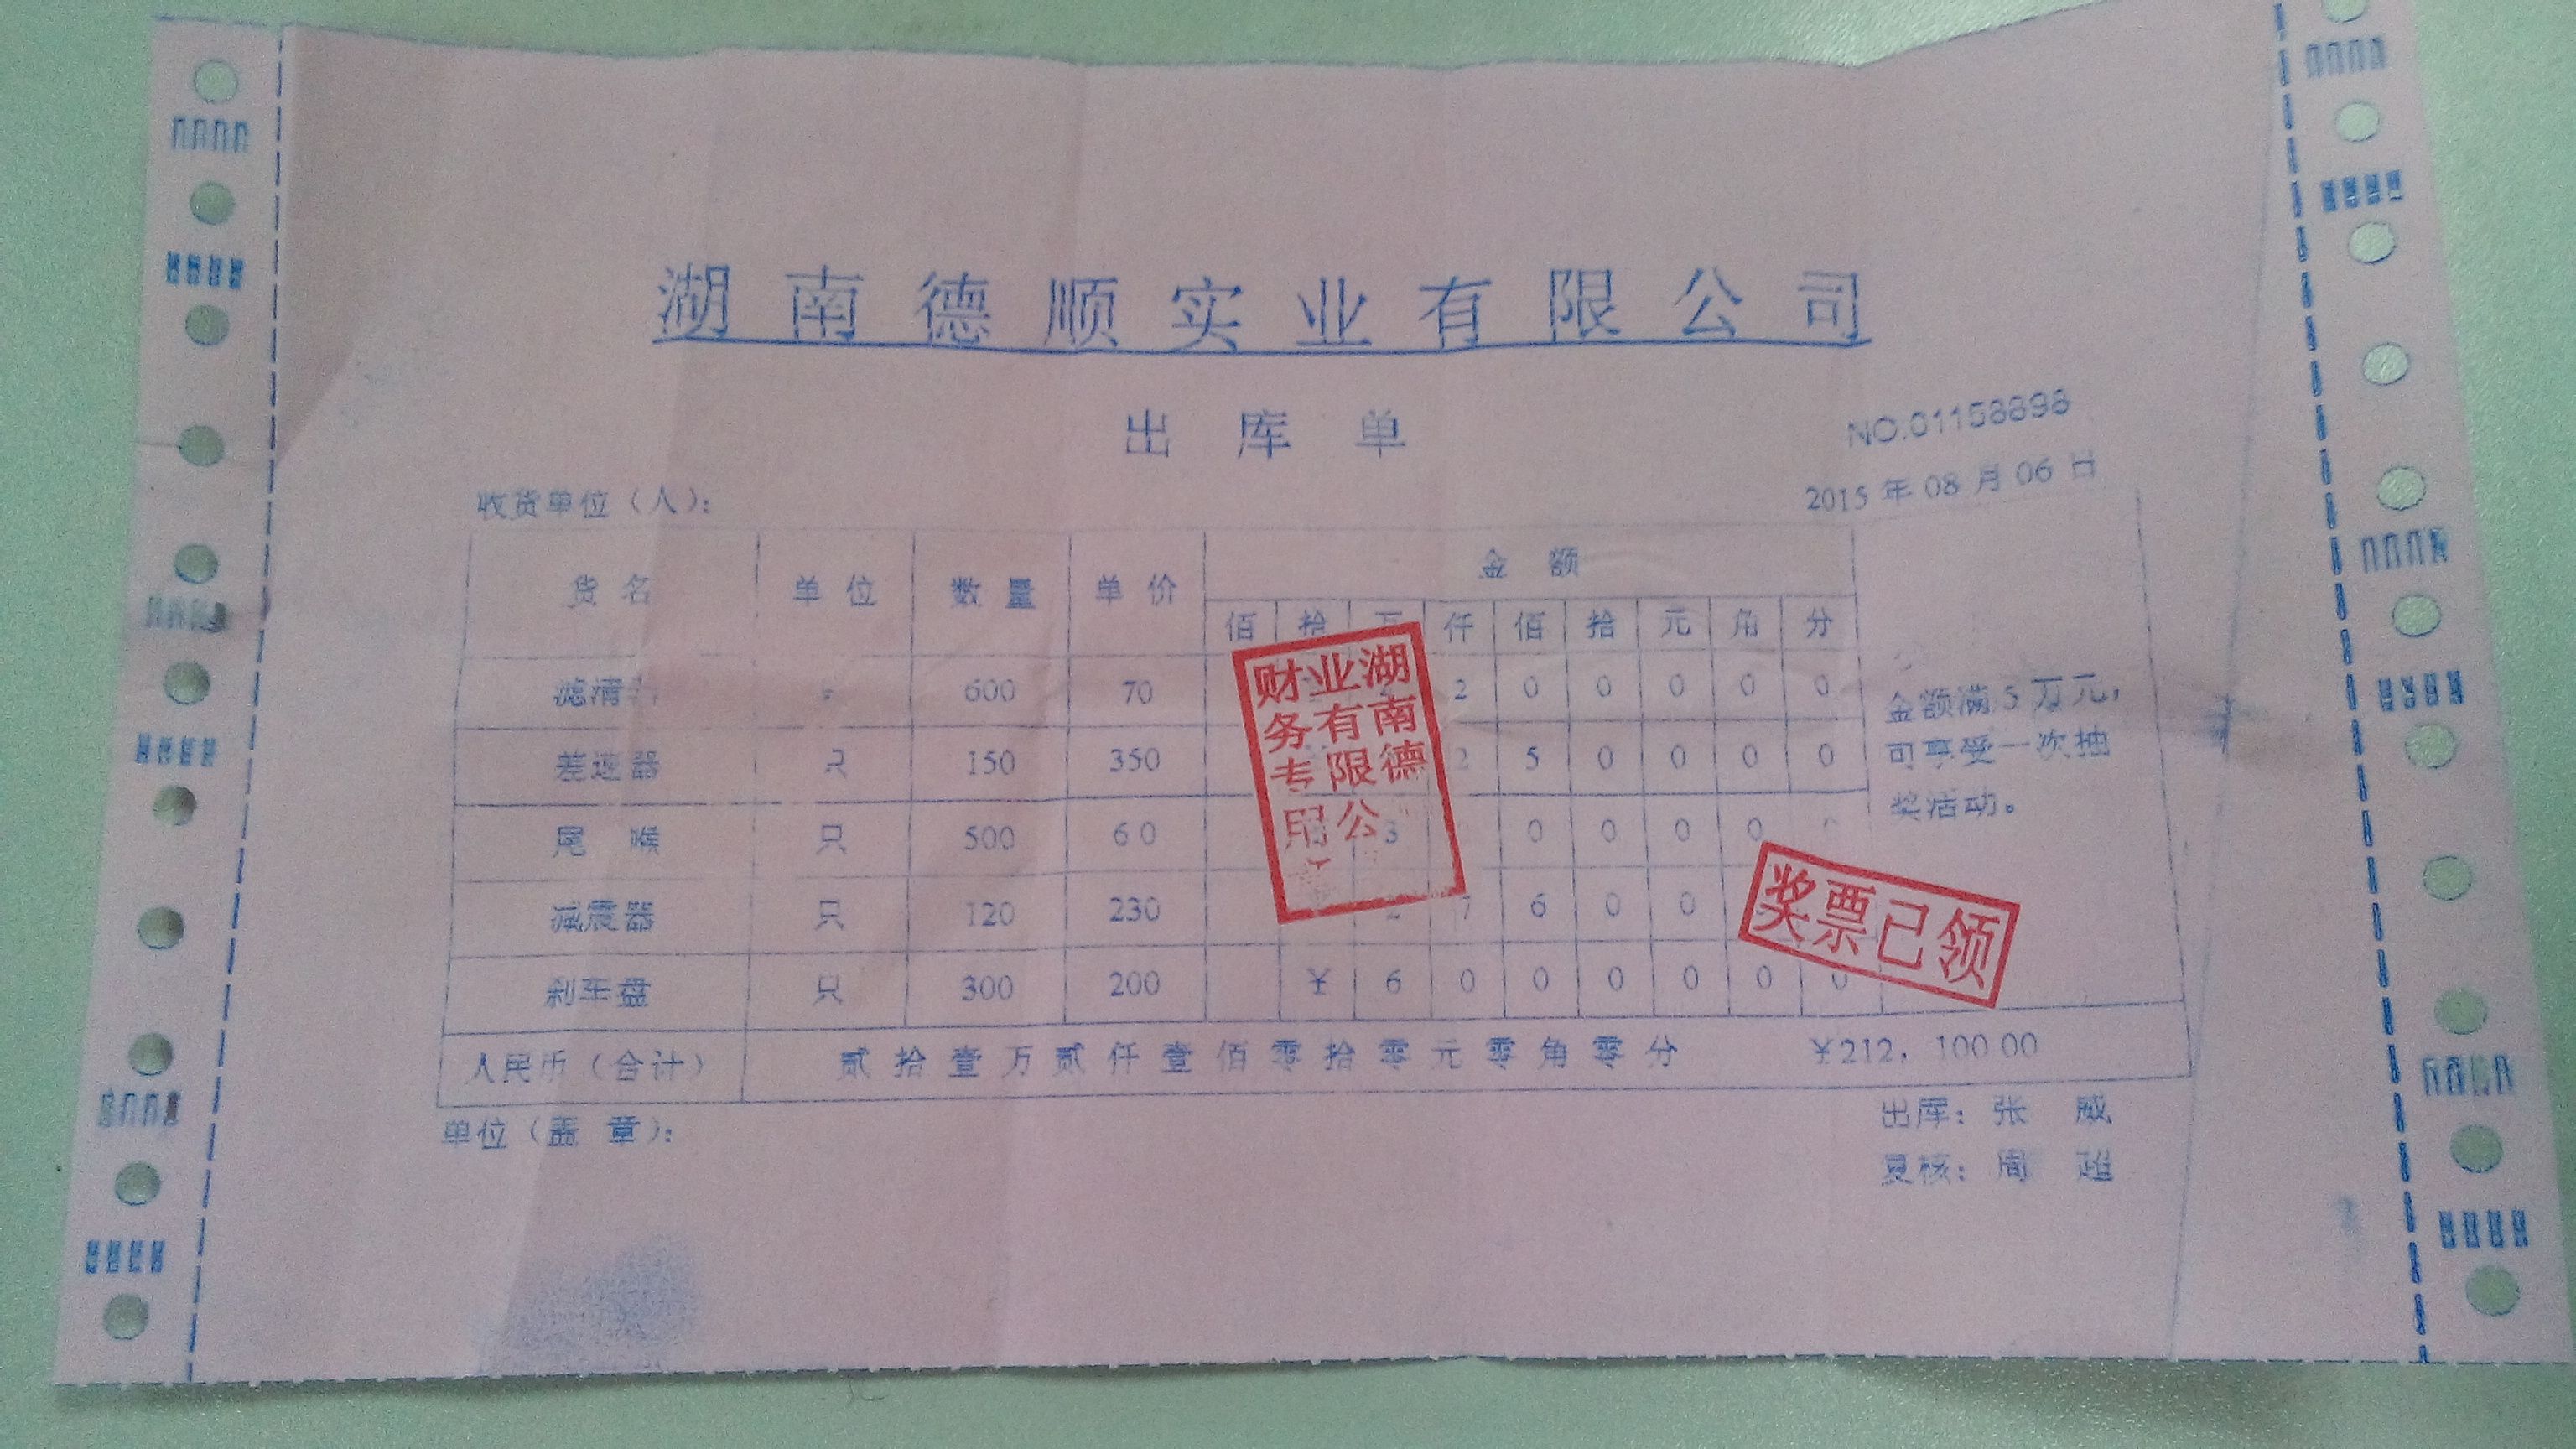 湖南德顺实业有限公司
出库单
NO.01158898
2015 年 08 月 06 日
收货单位（人）：
货名 单位 数量 单价 金额
佰 拾 万 仟 佰 拾 元 角 分
滤清 600 70 2 0 0 0 0 0
差速器 只 150 350 2 5 0 0 0 0
尾喉 只 500 60 3 0 0 0 0
减震器 只 120 230 2 7 6 0 0
刹车盘 只 300 200 ¥ 6 0 0 0 0 0 0
金额满 5 万元，
可享受一次抽
奖活动。
人民币（合计） 贰拾壹万贰仟壹佰零拾零元零角零分 ¥212，100.00
单位（盖章）：
出库：张威
复核：周超
湖南德
业有限公
财务专用
奖票已领